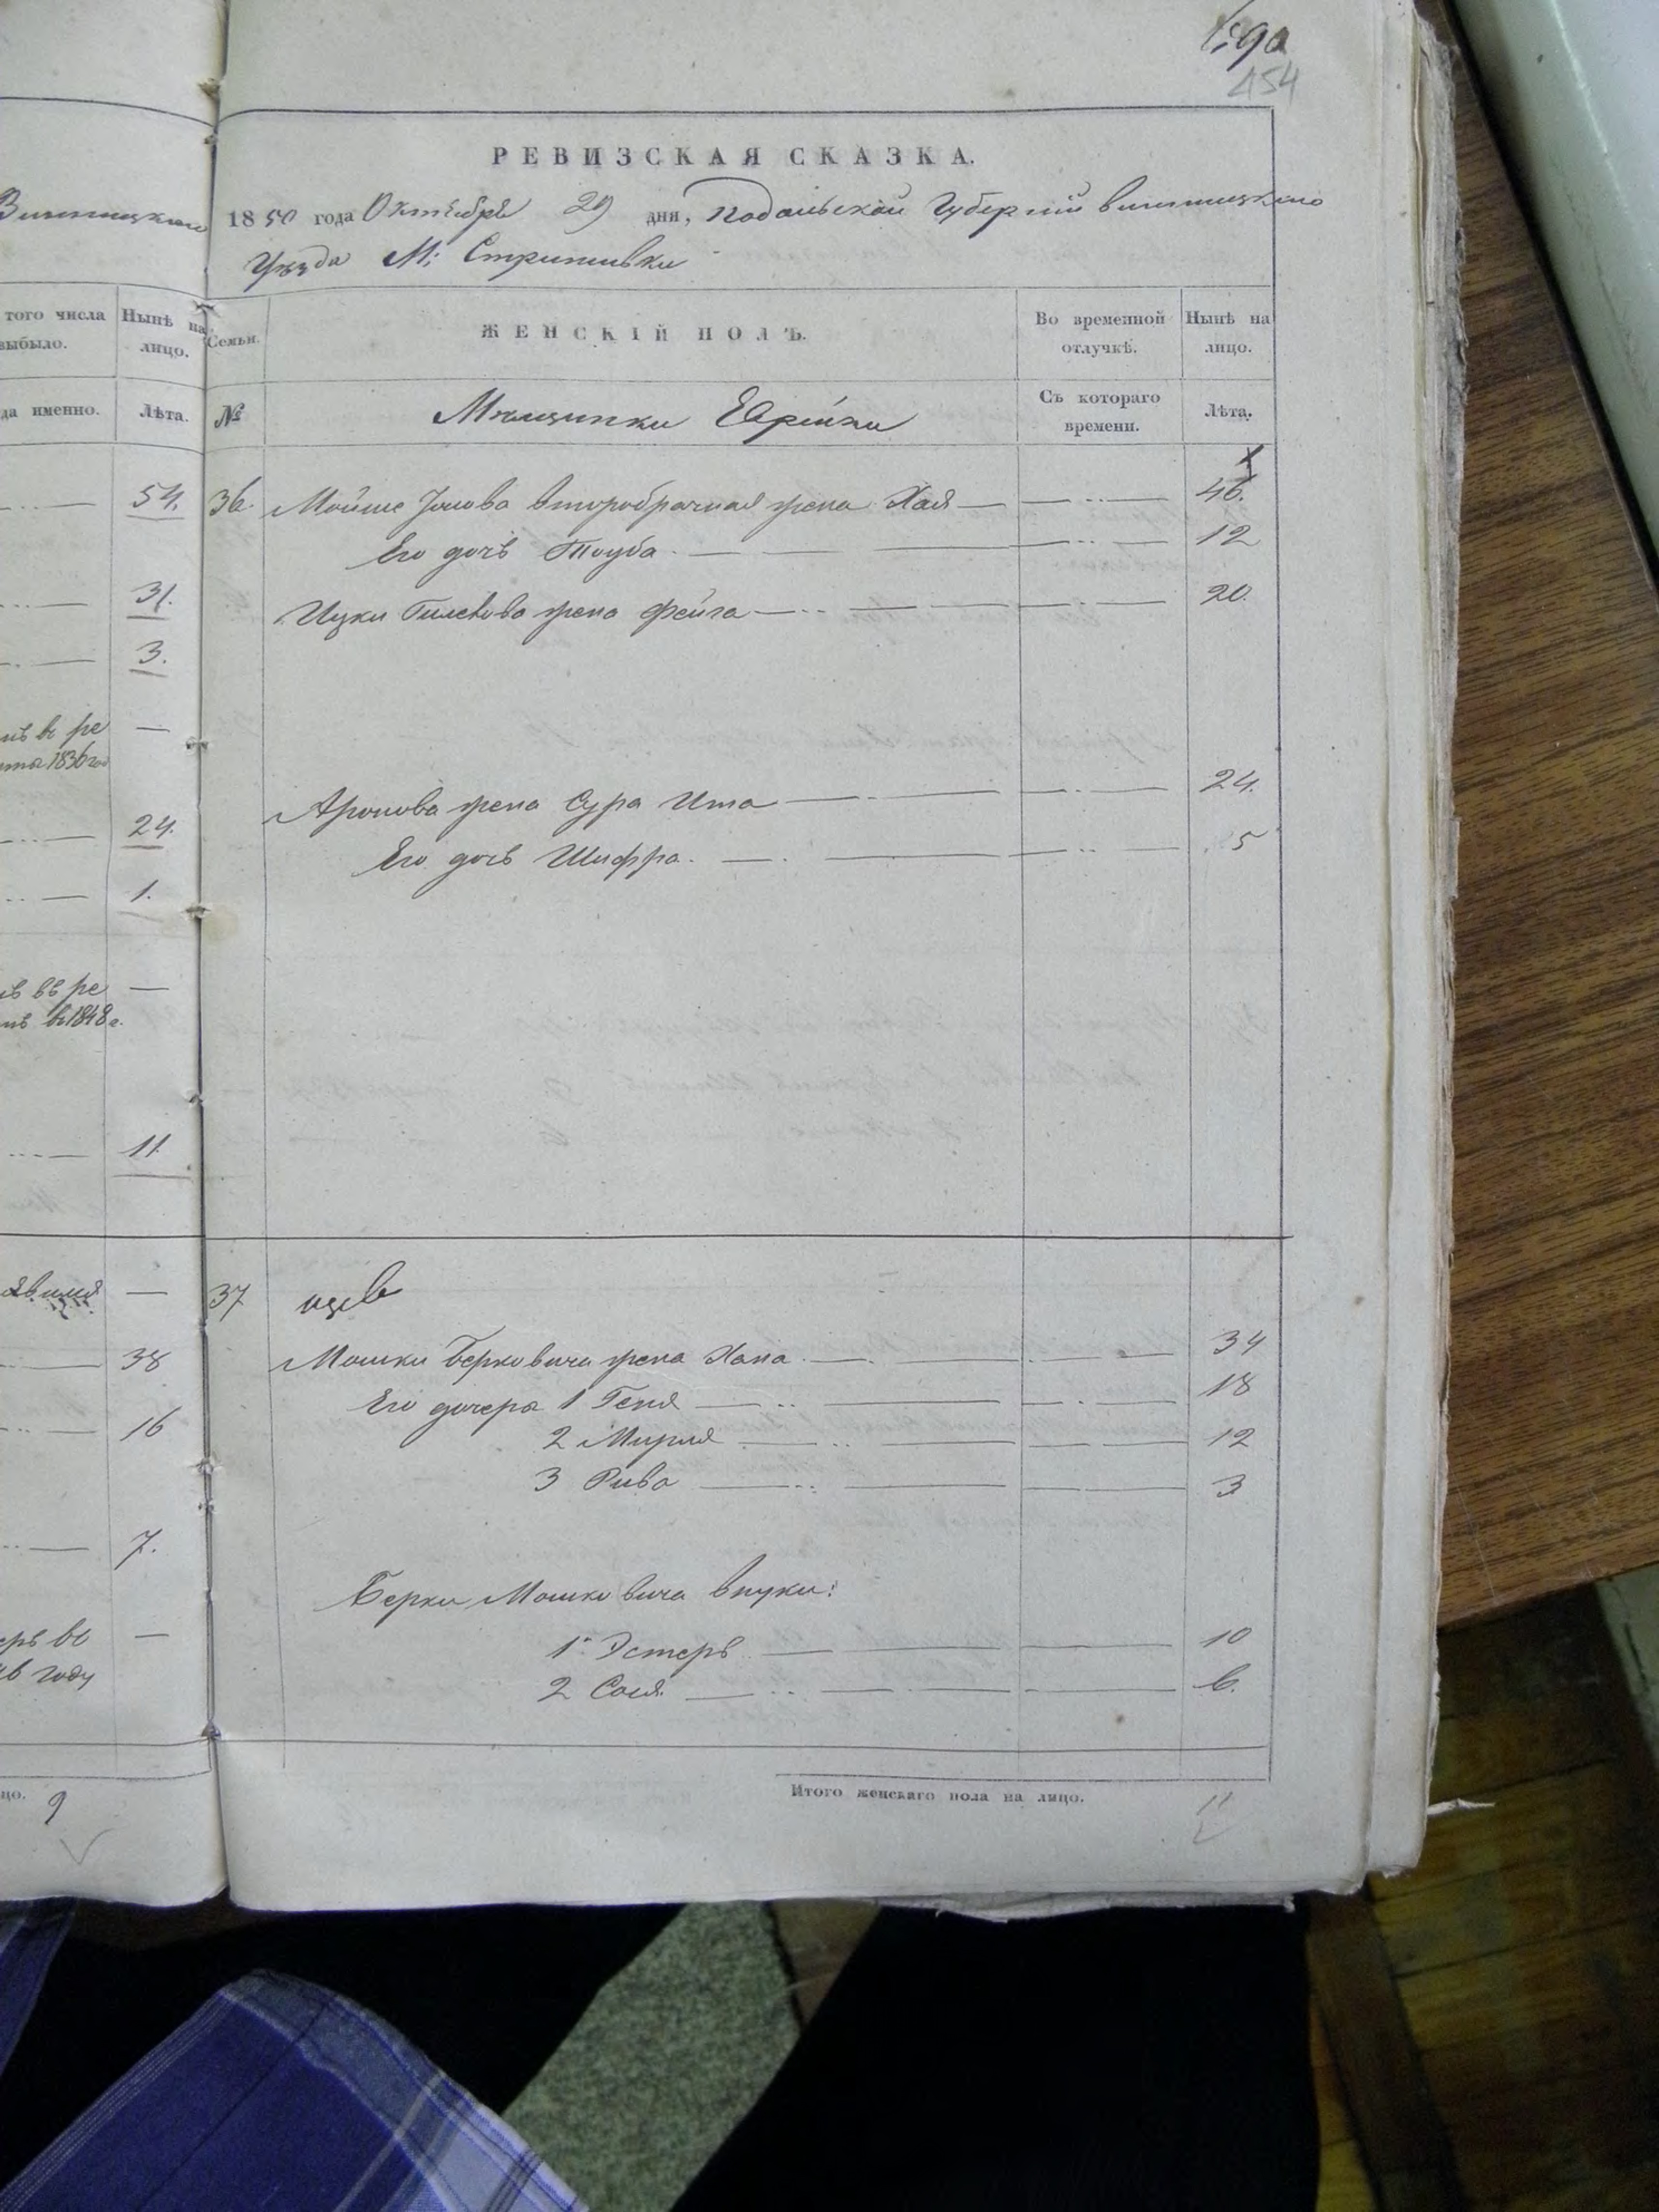 454
РЕВИЗСКАЯ СКАЗКА.
1850 года Октября 29 дня, Подольской Губернии Винницкого
Уѣзда М: Стрижавки
того числа выбыло.
Нынѣ на лицо.
Семьи.
ЖЕНСКІЙ ПОЛЪ.
Во временной отлучкѣ.
Нынѣ на лицо.
да именно.
Лѣта.
№
Мѣщанки Еврейки
Съ котораго времени.
Лѣта.
54.
36. Мойше Іонова второбрачная жена Хая 46.
Его дочь Тауба. 12
31.
Ицки жена Фейга 20.
3.
въ ре
1836 год
Аронова жена Сура Ита 24.
24.
Его дочь Шифра. 5
1.
въ ре
въ 1848 г.
11
37
38
Мошки Берковича жена Хана 34
Его дочери 1 Геня 18
16
2 Мирля 12
3 Рива 3
7.
Берки Мошковича внуки:
1. Эстеръ 10
году
2 Сося 6.
Итого женскаго пола на лицо. 11
цо. 9